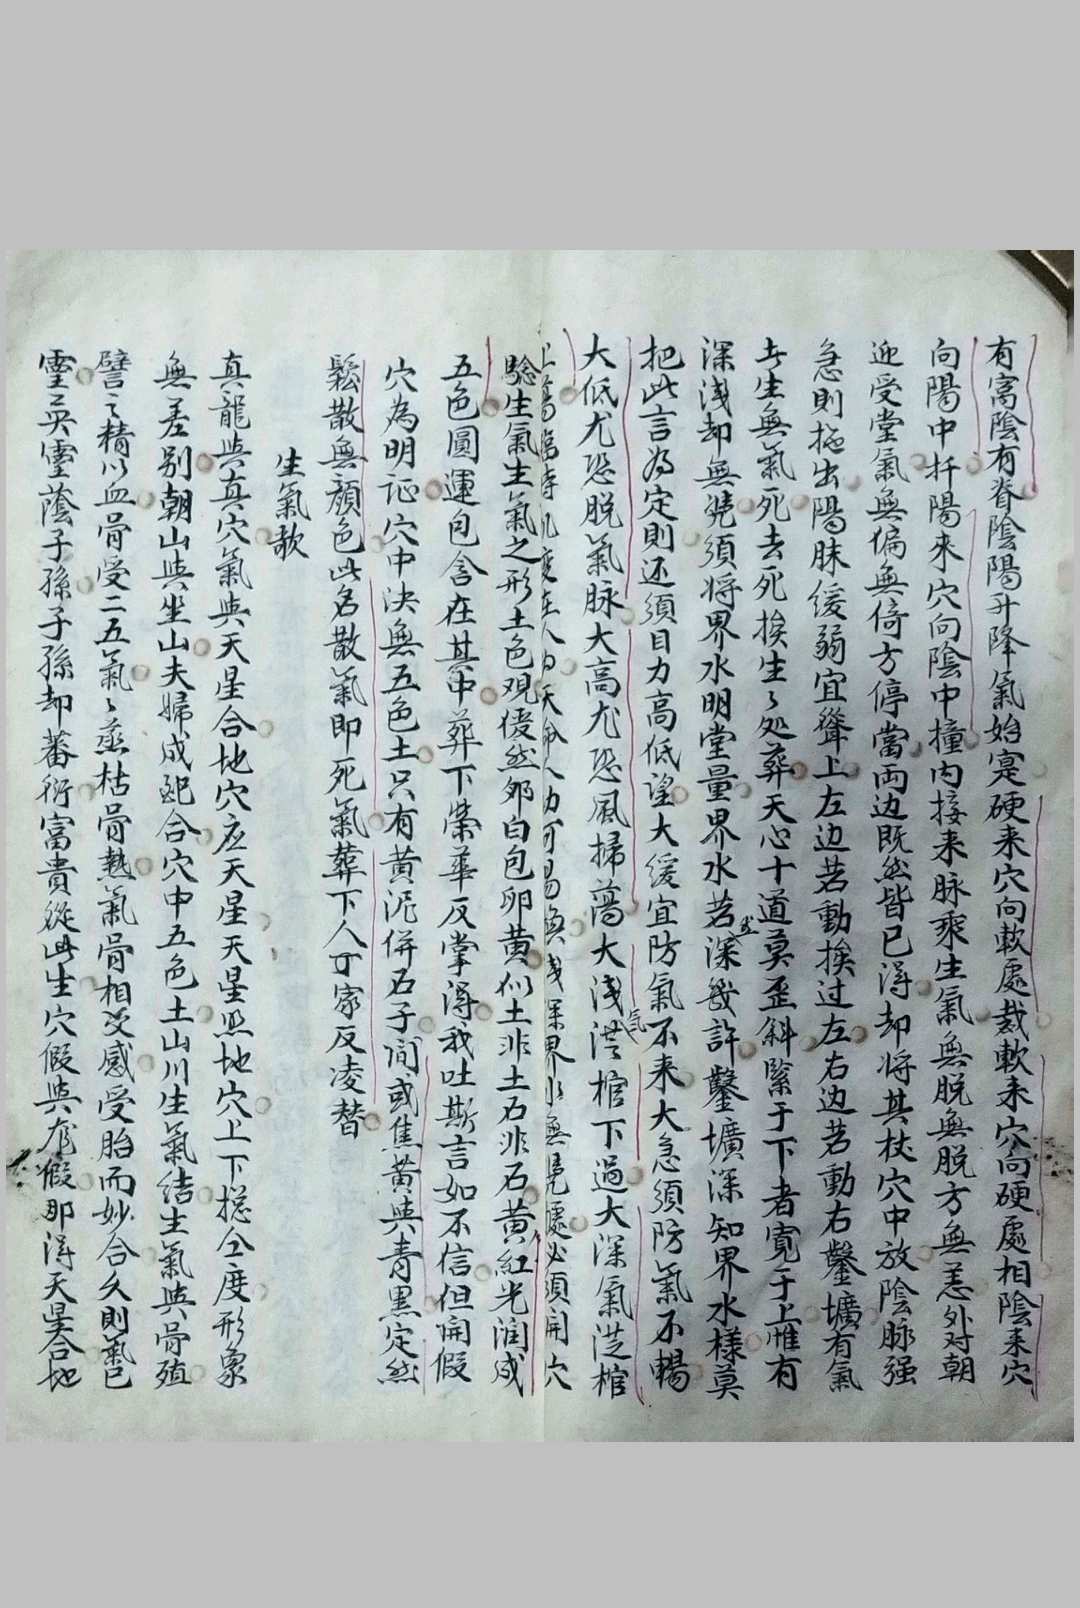 有窩陰有脊陰陽升降氣始寔硬来穴向軟處裁軟来穴向硬處相陰来穴
向陽中扦陽来穴向陰中撞内接来脉乘生氣無脱無脱方無恙外对朝
迎受堂氣無偏無倚方停當両边既然皆已淂却将其杖穴中放陰脉强
急則拖出陽脉緩弱宜聳上左边若動挨过左右边若動右鑿壙有氣
生無氣死去死挨生々処葬天心十道莫歪斜緊于下者寛于上惟有
深淺却無凭須将界水明堂量界水若深幾許鑿壙深知界水様莫
把此言為定則还須目力高低望大緩宜防氣不来大急須防氣不暢
大低尤恐脱氣脉大高尤恐風掃蕩大淺氣湴棺下過大深氣湴棺
上蕩臨時机変在人 界水無凭處必須開穴
驗生氣生氣之形土色观優然夘白包卵黄似土非土石非石黄紅光潤成
五色圓運包含在其中葬下榮華反掌淂我吐斯言如不信但開假
穴為明证穴中决無五色土只有黄泥併石子间或焦黄與青黒定然
鬆散無顔色此名散氣即死氣葬下人丁家反凌替
生氣歌
真龍與真穴氣與天星合地穴应天星天星照地穴上下捴仝度形象
無差别朝山與坐山夫婦成配合穴中五色土山川生氣結生氣與骨殖
譬之精以血骨受二五氣々蒸枯骨熱氣骨相交感受胎而妙合久則氣已
靈英靈蔭子孫子孫却蕃衍富貴從此生穴假與龙假那淂天星合地